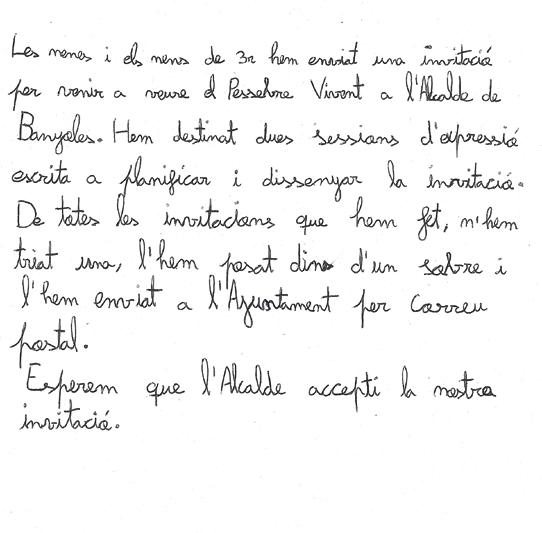 Les nenes i els nens de 3r hem enviat una invitació
per venir a veure el Pessebre Vivent a l'Alcalde de
Banyoles. Hem destinat dues sessions d'expressió
escrita a planificar i dissenyar la invitació.
De totes les invitacions que hem fet, n'hem
triat una, l'hem posat dins d'un sobre i
l'hem enviat a l'Ajuntament per correu
postal.
Esperem que l'Alcalde accepti la nostra
invitació.